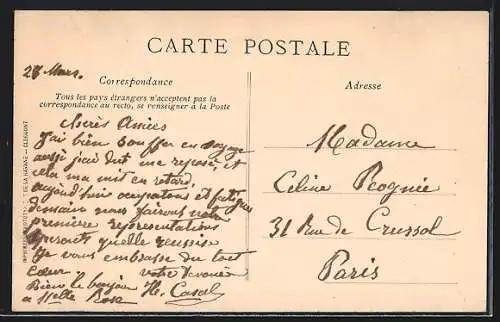 CARTE POSTALE
28 Mars.
Correspondance
Tous les pays étrangers n'acceptent pas la
correspondance au recto, se renseigner à la Poste
Adresse
Chères Amies
J'ai bien souffer en voyage
aussi j'ai dut me reposé, et
cela ma mit en retard,
aujourd'hui occupations et fatigues
demain nous fairons notre
première représentations
quelle reussise
Je vous embrasse du tout
cœur votre devouée
Bien le bonjour He. Casal
a Melle Rose
Madame
Celine Peognée
31 Rue de Crussol
Paris